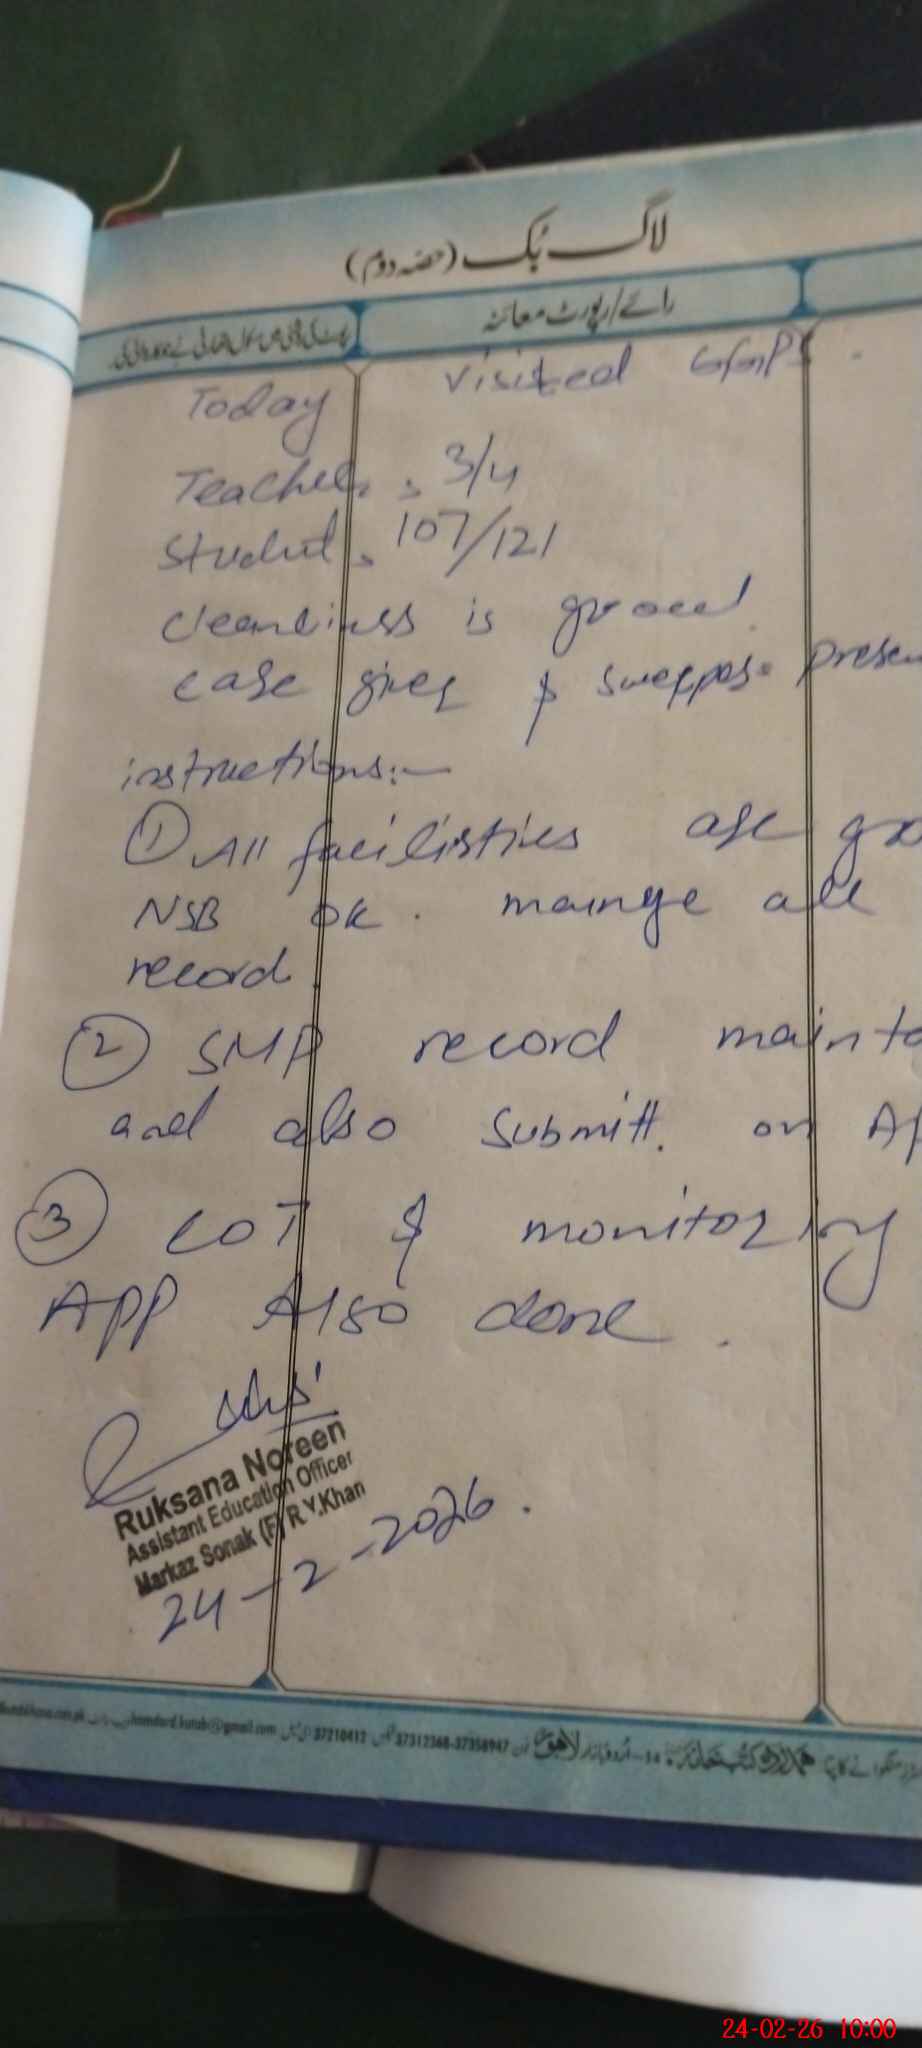 لاگ بُک (حصہ دوم)
رائے/رپورٹ معائنہ
Today visited GGPS.
Teacher, 3/4
Student, 107/121
Cleanliness is good
case giver & swepper present
instructions:-
① All facilisties are
NSB ok. mange all
record.
② SMP record
and also submitt. on
③ COT & monitoring
App Also done.
Ruksana Noreen
Assistant Education Officer
Markaz Sonak (F) R.Y.Khan
24-2-2026.
hamdard.kutab@gmail.com 37210412 37312368-37358947 لاہور
24-02-26 10:00